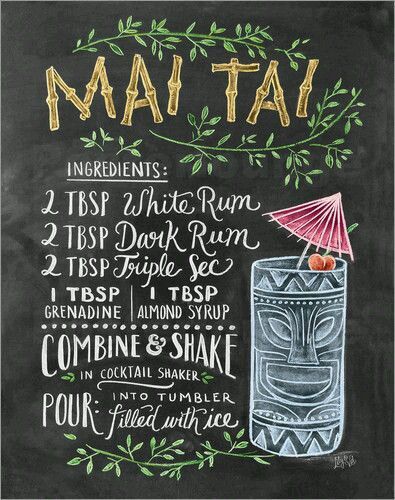 MAI TAI
INGREDIENTS:
2 TBSP White Rum
2 TBSP Dark Rum
2 TBSP Triple Sec
1 TBSP GRENADINE | 1 TBSP ALMOND SYRUP
COMBINE & SHAKE
IN COCKTAIL SHAKER
POUR: INTO TUMBLER
filled with ice